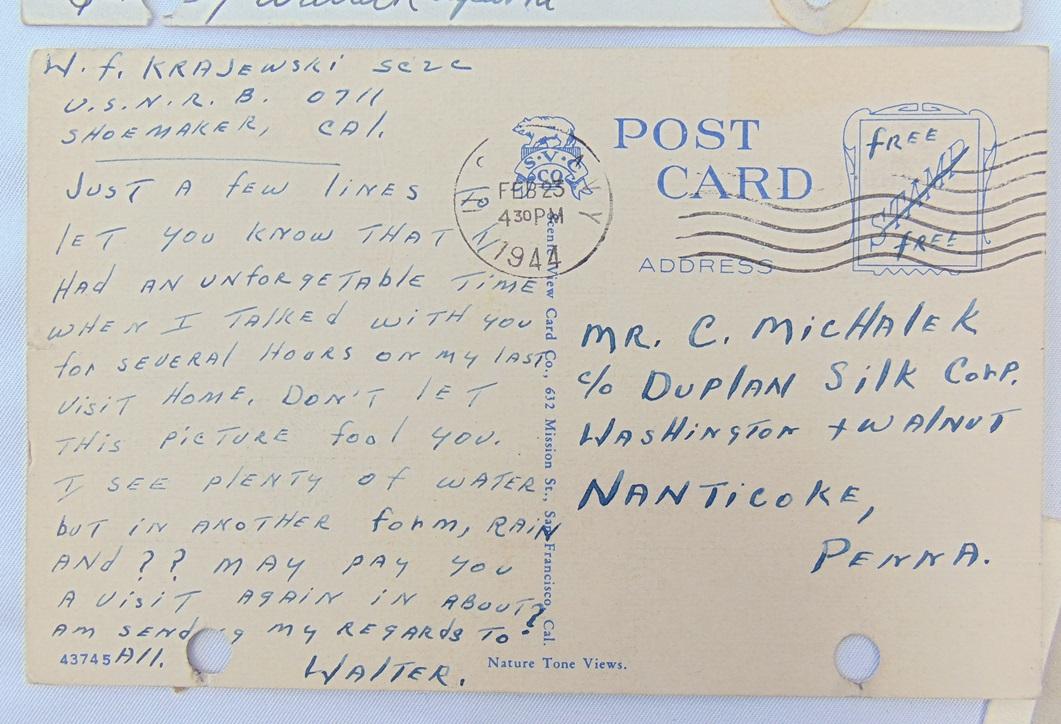 W. f. KRAJEWSKI Sc2c
U.S.N.R.B. 0711
SHOEMAKER, CAl.
JUST A fEW lINES to
lET YOU KNOW THAT I
HAd AN UNforgETABLE TIME
WHEN I TAlKEd WITH YOU
for SEVERAl HOURS ON MY lAST
VISIT HOME. DON'T lET
THIS PICTURE fool YOU.
I SEE PlENTY Of WATER
bUT IN ANOTHER form, RAIN
ANd ?? MAY PAY YOU
A VISIT AGAIN IN ABOUT?
AM SENd g MY REGARdS TO
All.
WAlTER.
43745
S.V.C
CO
FEB 23
4 30 PM
1944
POST
CARD
fREE
STAMP
fREE
ADDRESS
MR. C. MICHAlEK
c/o DUPlAN SIlK CORP.
WASHINGTON + WAlNUT
NANTICOKE,
PENNA.
Scenic View Card Co., 632 Mission St., San Francisco, Cal.
Nature Tone Views.